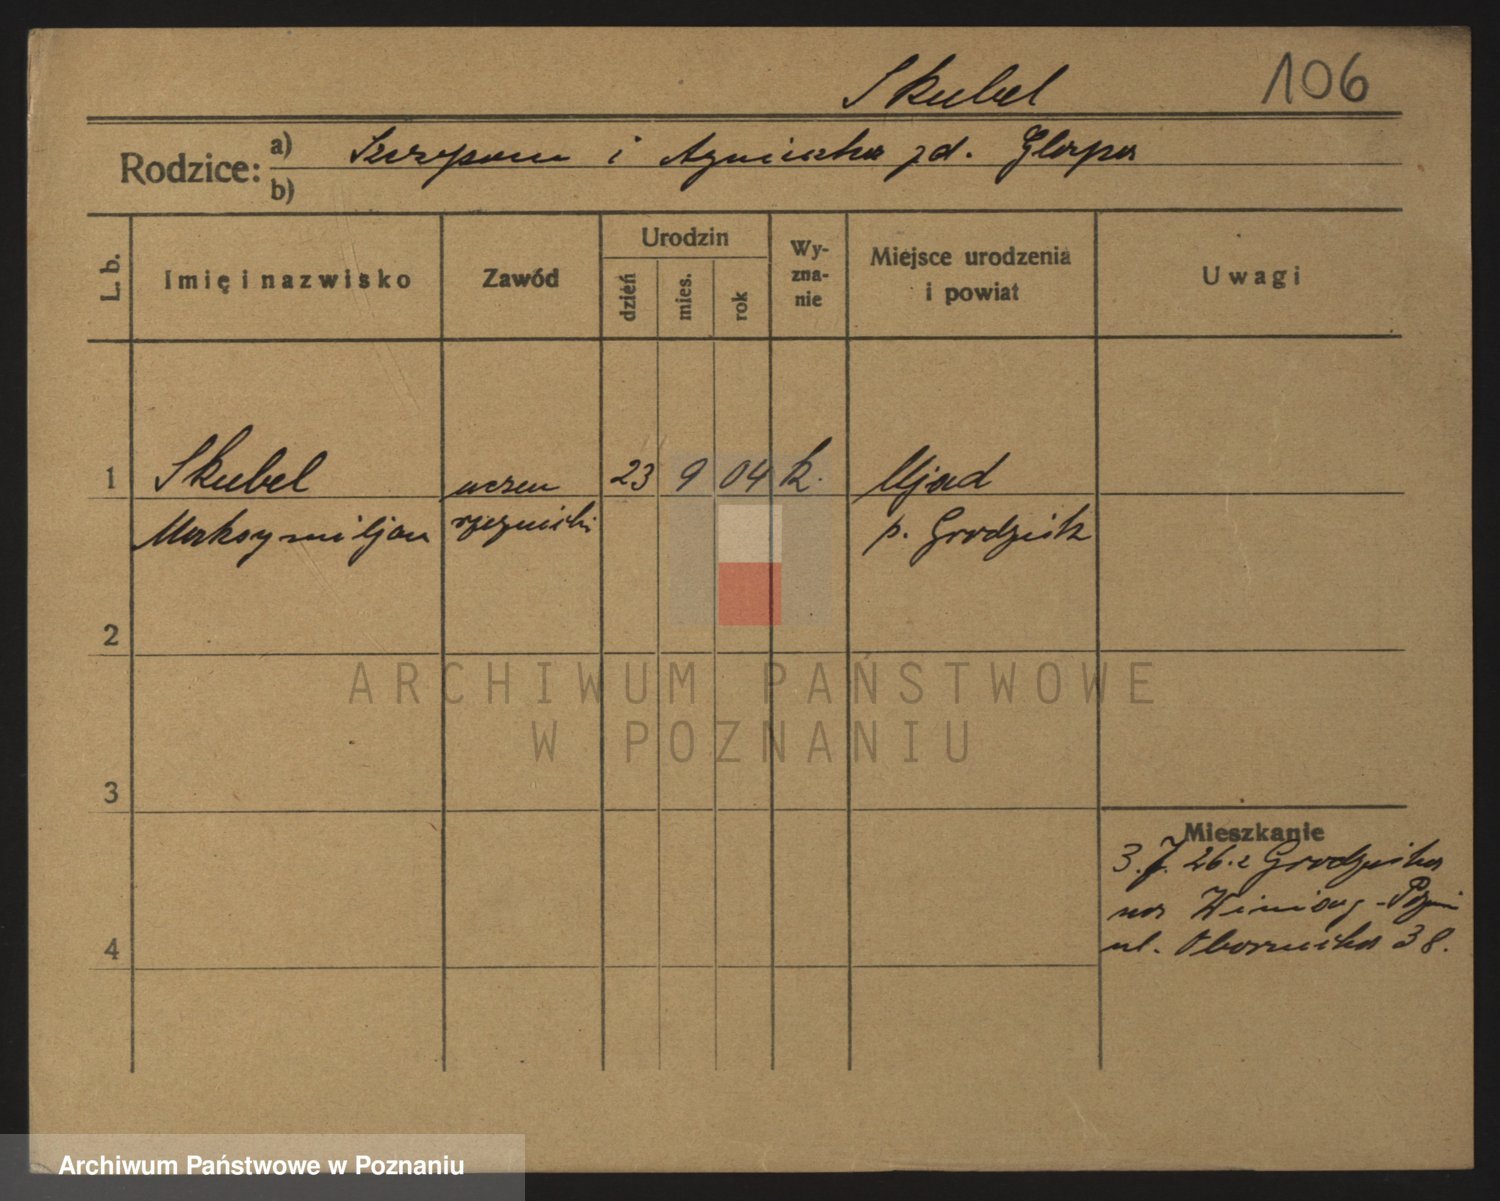 Skubel 106
Rodzice: a) Szczepan i Agnieszka zd. Glapa
b)
L. b. Imię i nazwisko Zawód Urodzin dzień mies. rok Wy-zna-nie Miejsce urodzenia i powiat Uwagi
1 Skubel uczeń 23 9 04 k. Ujazd
Maksymiljan rzeźnicki p. Grodzisk
2
3
4
Mieszkanie
3. 7. 26. z Grodziska
na Winiary -
ul. Obornicka 38.
ARCHIWUM PAŃSTWOWE
W POZNANIU
Archiwum Państwowe w Poznaniu